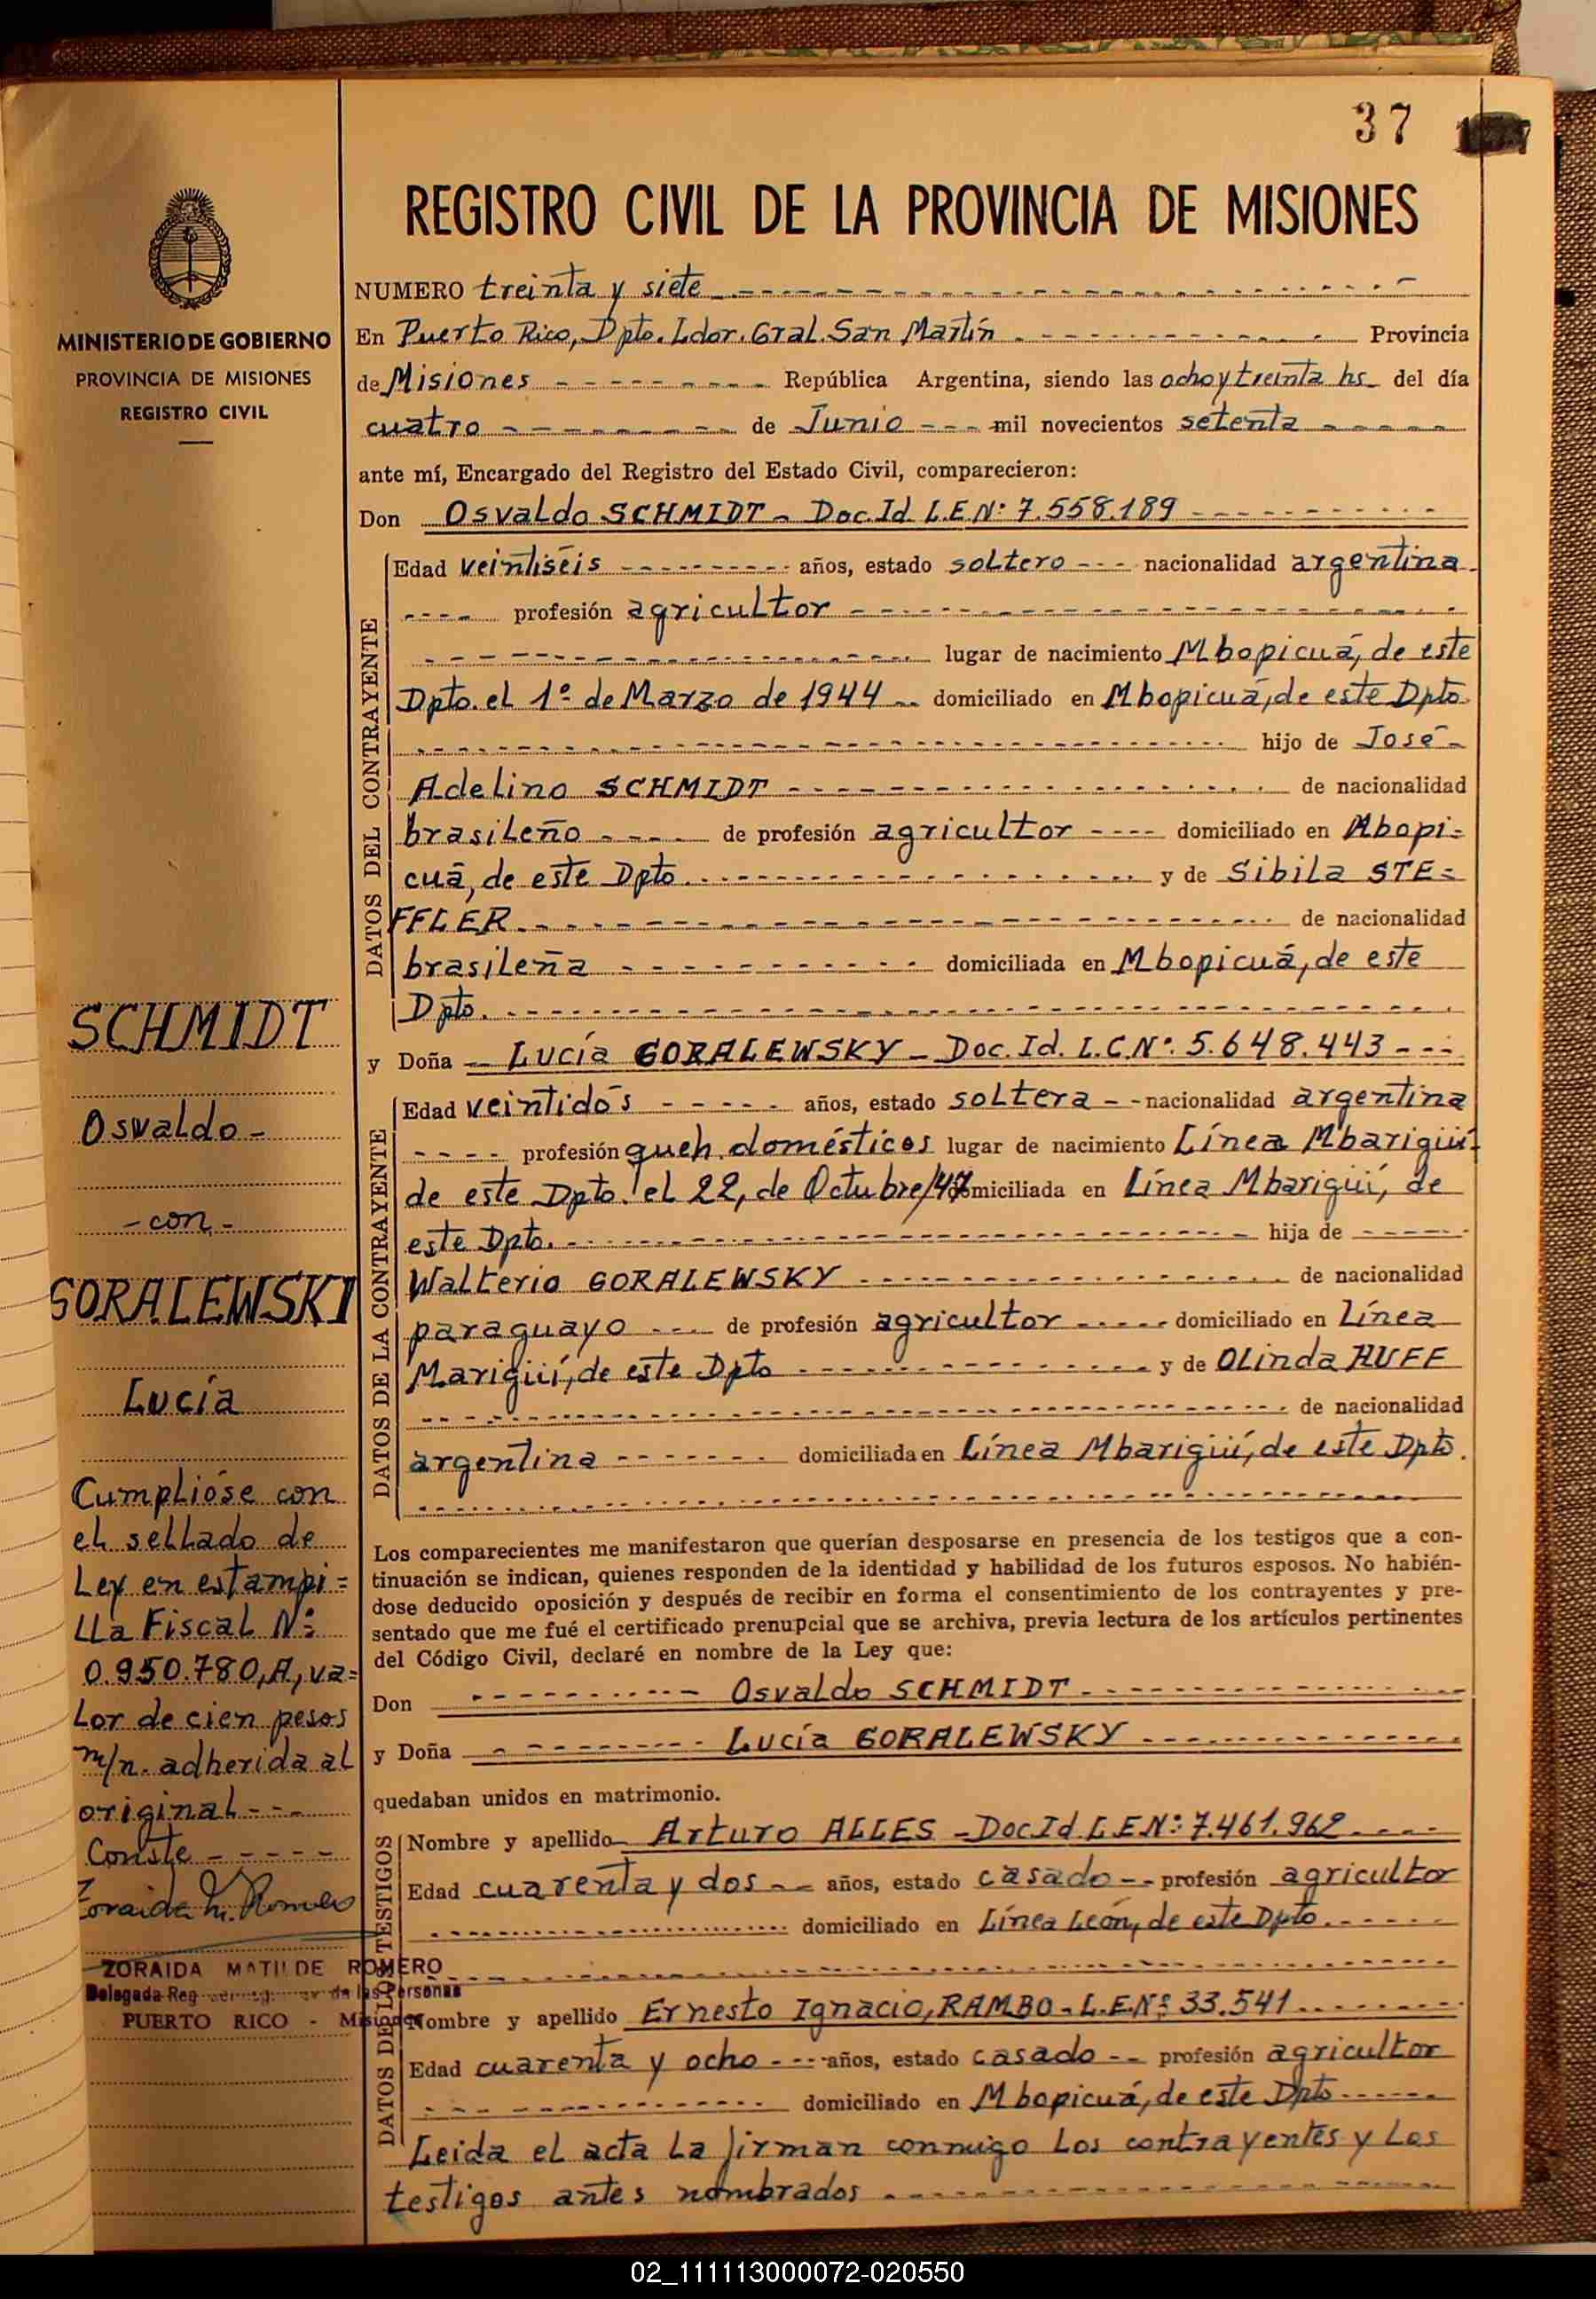 37
REGISTRO CIVIL DE LA PROVINCIA DE MISIONES
MINISTERIO DE GOBIERNO
PROVINCIA DE MISIONES
REGISTRO CIVIL
SCHMIDT
Osvaldo -
- con -
GORALEWSKI
Lucía
Cumplióse con
el sellado de
Ley en estampi=
lla Fiscal Nº:
0.950.780, A, va=
lor de cien pesos
m/n. adherida al
original - - -
Conste - - - - -
Zoraida M. Romero
ZORAIDA MATILDE ROMERO
Delegada Reg de las Personas
PUERTO RICO - Misiones
NUMERO treinta y siete
En Puerto Rico, Dpto. Ldor. Gral. San Martín Provincia
de Misiones República Argentina, siendo las ocho y treinta hs del día
cuatro de Junio mil novecientos setenta
ante mí, Encargado del Registro del Estado Civil, comparecieron:
Don Osvaldo SCHMIDT - Doc. Id L.E Nº 7.558.189
DATOS DEL CONTRAYENTE
Edad veintiséis años, estado soltero nacionalidad argentina
profesión agricultor
lugar de nacimiento Mbopicuá, de este
Dpto. el 1º de Marzo de 1944 domiciliado en Mbopicuá, de este Dpto
hijo de José
Adelino SCHMIDT de nacionalidad
brasileño de profesión agricultor domiciliado en Mbopi=
cuá, de este Dpto. y de Sibila STE=
FFLER de nacionalidad
brasileña domiciliada en Mbopicuá, de este
Dpto.
y Doña Lucía GORALEWSKY - Doc. Id. L.C. Nº: 5.648.443
DATOS DE LA CONTRAYENTE
Edad veintidós años, estado soltera nacionalidad argentina
profesión queh. domésticos lugar de nacimiento Línea Mbarigüí
de este Dpto. el 22, de Octubre/47 domiciliada en Línea Mbarigüí, de
este Dpto. hija de
Walterio GORALEWSKY de nacionalidad
paraguayo de profesión agricultor domiciliado en Línea
Marigüí, de este Dpto y de Olinda HUFF
de nacionalidad
argentina domiciliada en Línea Mbarigüí, de este Dpto.
Los comparecientes me manifestaron que querían desposarse en presencia de los testigos que a con-
tinuación se indican, quienes responden de la identidad y habilidad de los futuros esposos. No habién-
dose deducido oposición y después de recibir en forma el consentimiento de los contrayentes y pre-
sentado que me fué el certificado prenupcial que se archiva, previa lectura de los artículos pertinentes
del Código Civil, declaré en nombre de la Ley que:
Don Osvaldo SCHMIDT
y Doña Lucía GORALEWSKY
quedaban unidos en matrimonio.
DATOS DE LOS TESTIGOS
Nombre y apellido Arturo ALLES - Doc. Id L.E Nº: 7.461.962
Edad cuarenta y dos años, estado casado profesión agricultor
domiciliado en Línea León, de este Dpto.
Nombre y apellido Ernesto Ignacio, RAMBO - L.E. Nº 33.541
Edad cuarenta y ocho años, estado casado profesión agricultor
domiciliado en Mbopicuá, de este Dpto
Leida el acta la firman conmigo los contrayentes y los
testigos antes nombrados
02_111113000072-020550